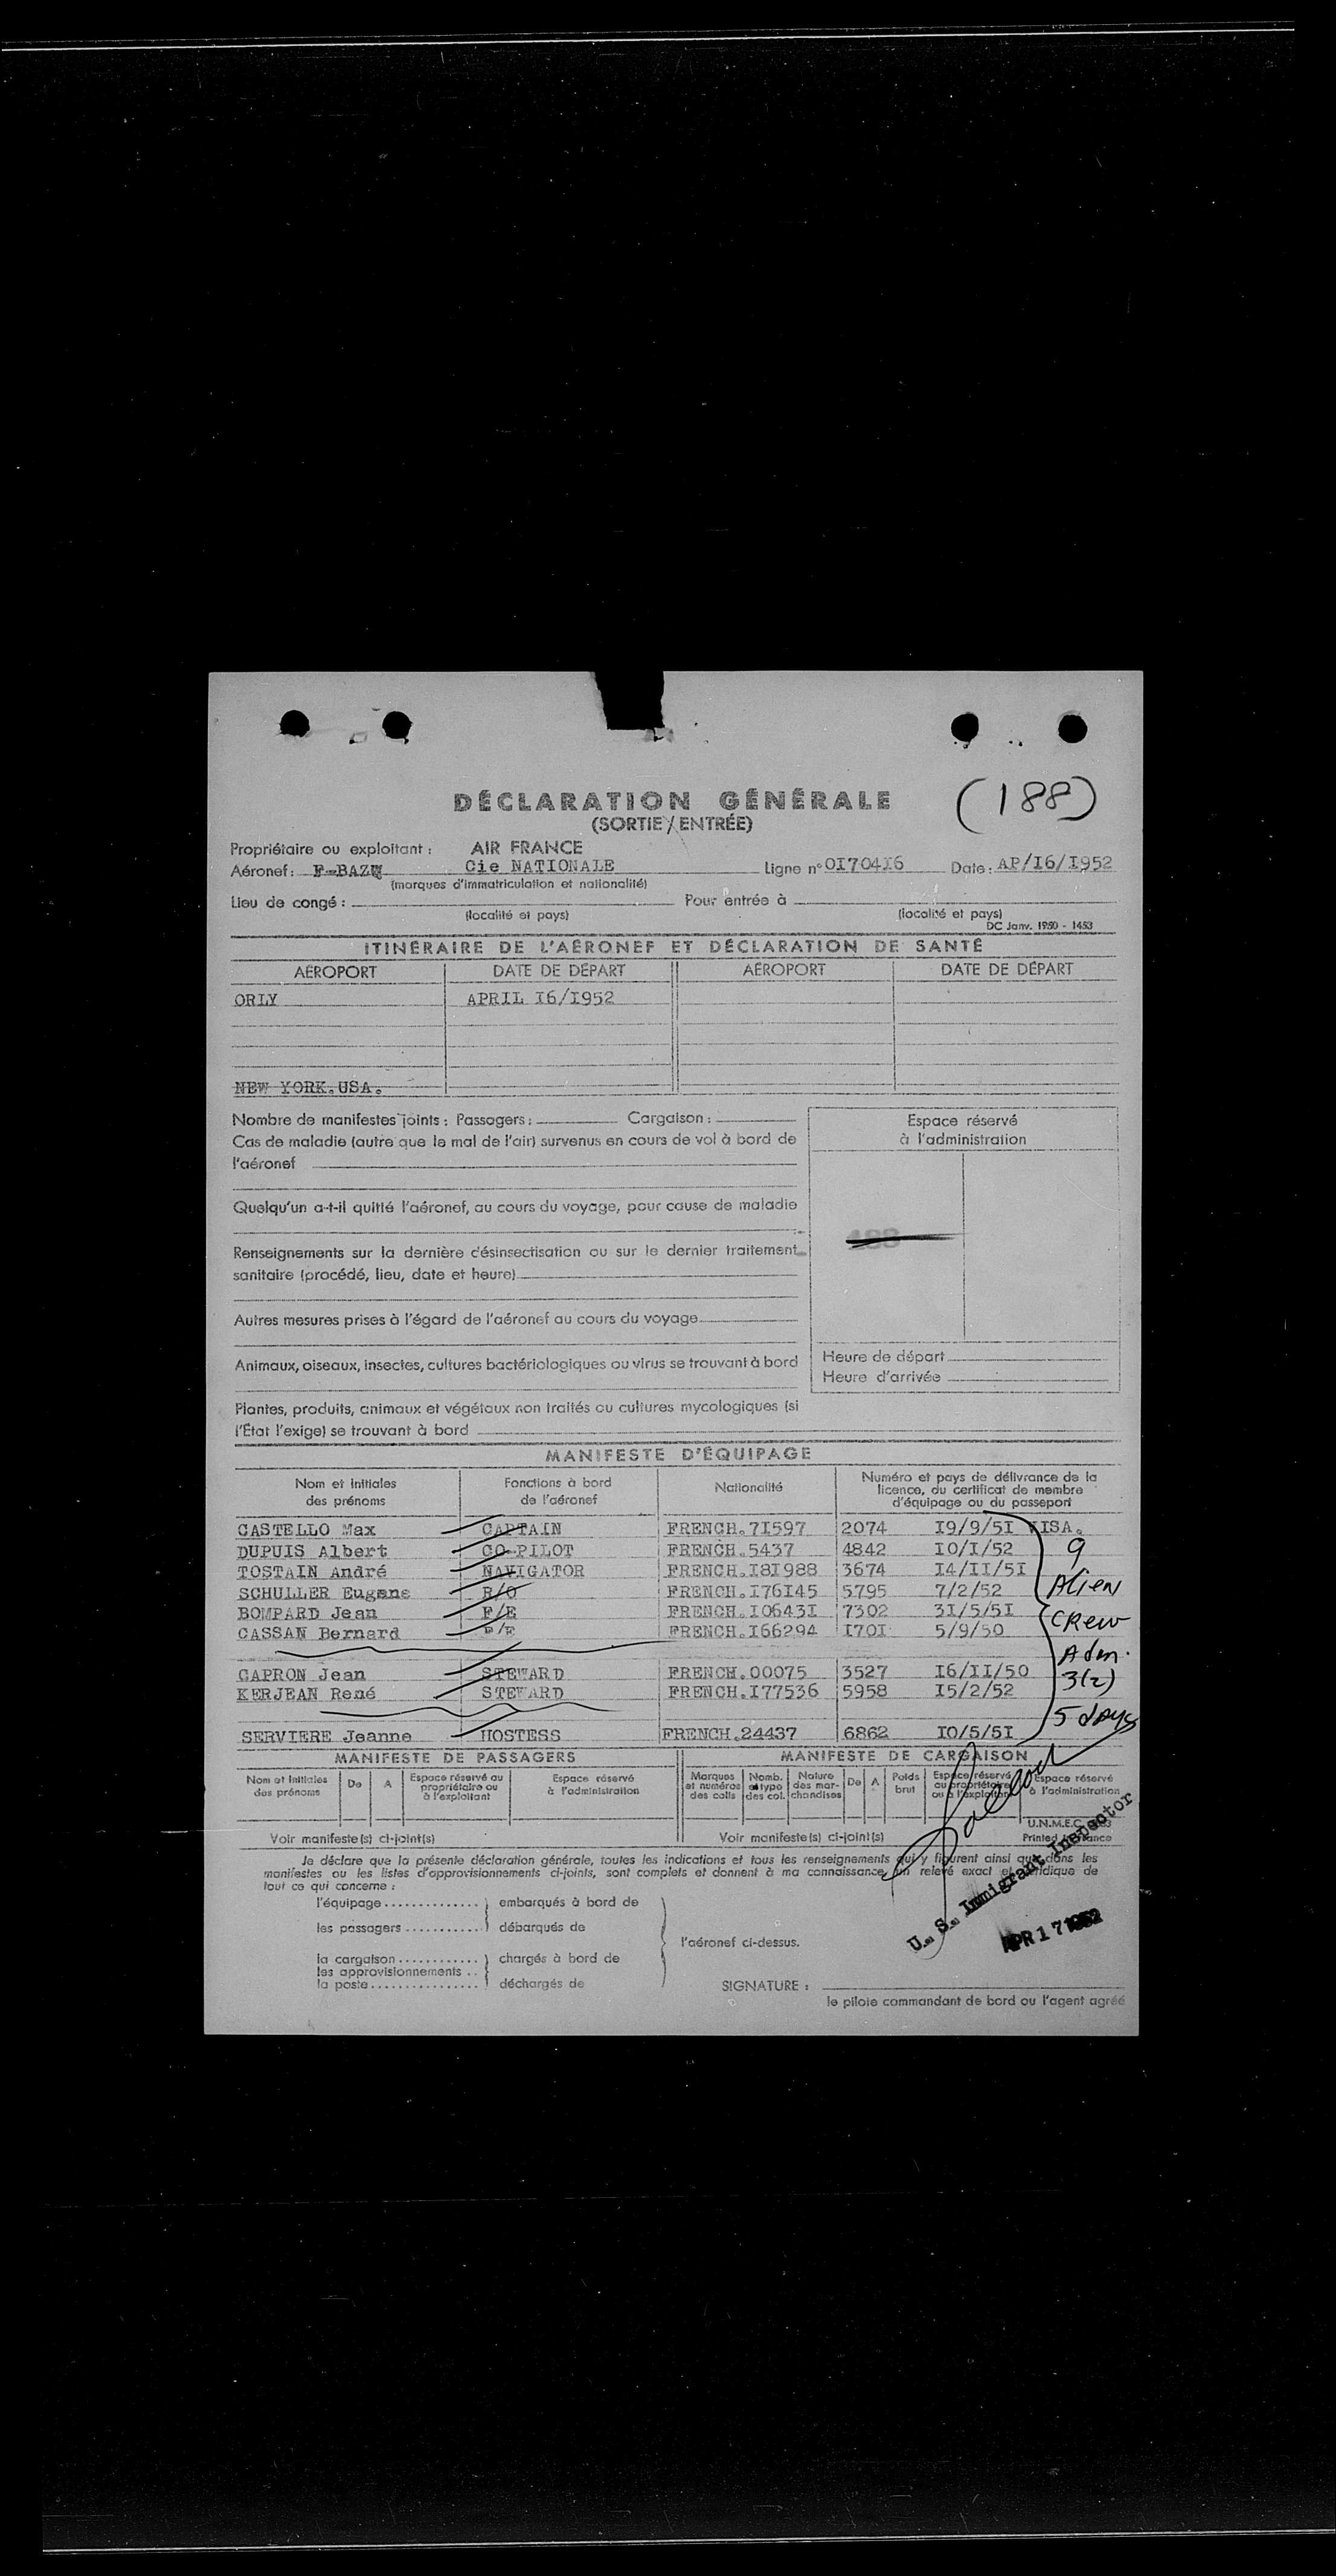 (188)
DÉCLARATION GÉNÉRALE
(SORTIE / ENTRÉE)
Propriétaire ou exploitant : AIR FRANCE
Aéronef : F-BAZ Cie NATIONALE Ligne n° 0I704I6 Date : AP/I6/I952
(marques d'immatriculation et nationalité)
Lieu de congé : Pour entrée à
(localité et pays) (localité et pays)
DC Janv. 1950 - 1453
ITINÉRAIRE DE L'AÉRONEF ET DÉCLARATION DE SANTÉ
AÉROPORT DATE DE DÉPART AÉROPORT DATE DE DÉPART
ORLY APRIL I6/I952
NEW YORK.USA.
Nombre de manifestes joints : Passagers : Cargaison :
Espace réservé
à l'administration
Cas de maladie (autre que le mal de l'air) survenus en cours de vol à bord de
l'aéronef
Quelqu'un a-t-il quitté l'aéronef, au cours du voyage, pour cause de maladie
188
Renseignements sur la dernière désinsectisation ou sur le dernier traitement
sanitaire (procédé, lieu, date et heure)
Autres mesures prises à l'égard de l'aéronef au cours du voyage
Animaux, oiseaux, insectes, cultures bactériologiques ou virus se trouvant à bord
Heure de départ
Heure d'arrivée
Plantes, produits, animaux et végétaux non traités ou cultures mycologiques (si
l'État l'exige) se trouvant à bord
MANIFESTE D'ÉQUIPAGE
Nom et initiales des prénoms Fonctions à bord de l'aéronef Nationalité Numéro et pays de délivrance de la licence, du certificat de membre d'équipage ou du passeport
CASTELLO Max CAPTAIN FRENCH.7I597 2074 I9/9/5I VISA.
DUPUIS Albert CO-PILOT FRENCH.5437 4842 I0/I/52
TOSTAIN André NAVIGATOR FRENCH.I8I988 3674 I4/II/5I
SCHULLER Eugene R/O FRENCH.I76I45 5795 7/2/52
BOMPARD Jean F/E FRENCH.I0643I 7302 3I/5/5I
CASSAN Bernard F/E FRENCH.I66294 I70I 5/9/50
CAPRON Jean STEWARD FRENCH.00075 3527 I6/II/50
KERJEAN René STEWARD FRENCH.I77536 5958 I5/2/52
SERVIERE Jeanne HOSTESS FRENCH.24437 6862 I0/5/5I
9
Alien
Crew
Adm.
3(2)
5 days
MANIFESTE DE PASSAGERS MANIFESTE DE CARGAISON
Nom et initiales des prénoms De A Espace réservé au propriétaire ou à l'exploitant Espace réservé à l'administration
Marques et numéros des colis Nomb. et type des col. Nature des marchandises De A Poids brut Espace réservé au propriétaire ou à l'exploitant Espace réservé à l'administration
Voir manifeste(s) ci-joint(s) Voir manifeste(s) ci-joint(s)
U.N.M.E.C.
Printed France
Je déclare que la présente déclaration générale, toutes les indications et tous les renseignements qui y figurent ainsi que dans les
manifestes ou les listes d'approvisionnements ci-joints, sont complets et donnent à ma connaissance un relevé exact et véridique de
tout ce qui concerne :
l'équipage .............. embarqués à bord de
les passagers ........... débarqués de
l'aéronef ci-dessus.
la cargaison ............ chargés à bord de
les approvisionnements ..
la poste ................ déchargés de
U. S. Immigrant Inspector
APR 17 1952
SIGNATURE :
le pilote commandant de bord ou l'agent agréé